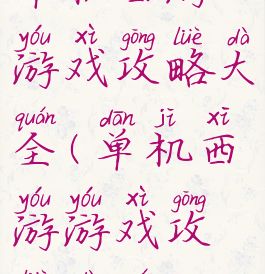 yóu xì gōng lüè dà
游戏攻略大
quán dān jī xī
全(单机西
yóu yóu xì gōng
游游戏攻